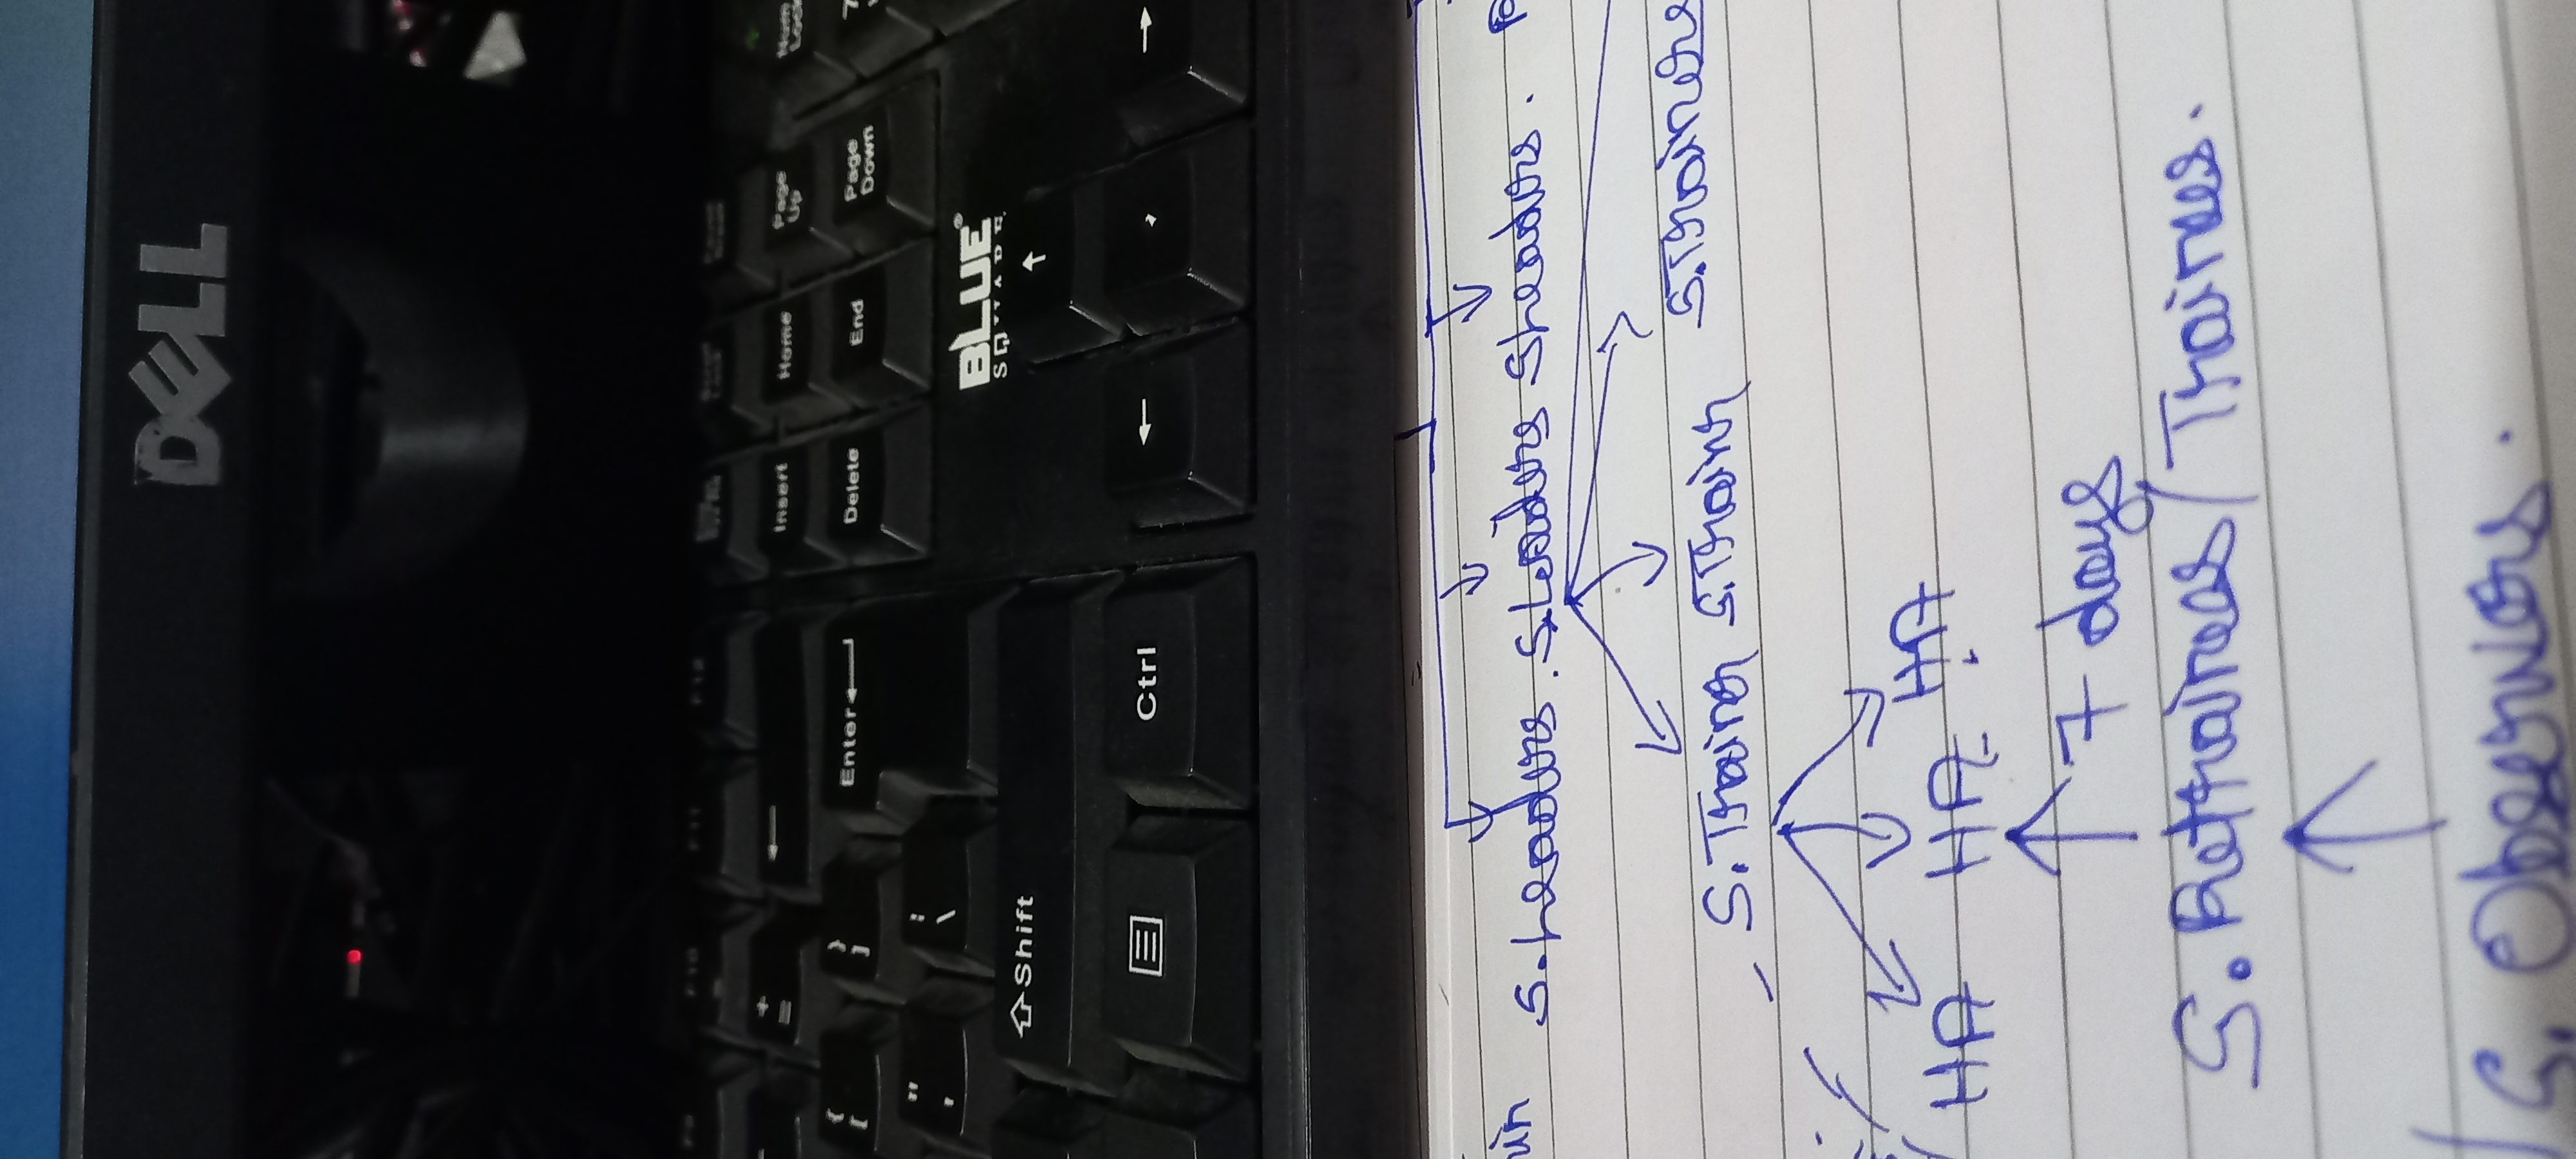 DELL
F9 F10 F11 F12 Scroll Lock Pause Break
+ = Insert Home Page Up Num Lock
{ [ } ] Enter Delete End Page Down 7
" ' : \
BLUE®
SQUARE
Shift
Ctrl
S.Leaders. S.Leaders S Leaders.
S.Trainer S.Trainr S.Trainers
HA HA HA
7 days
S. Retrainees/Trainees.
S. Observers.